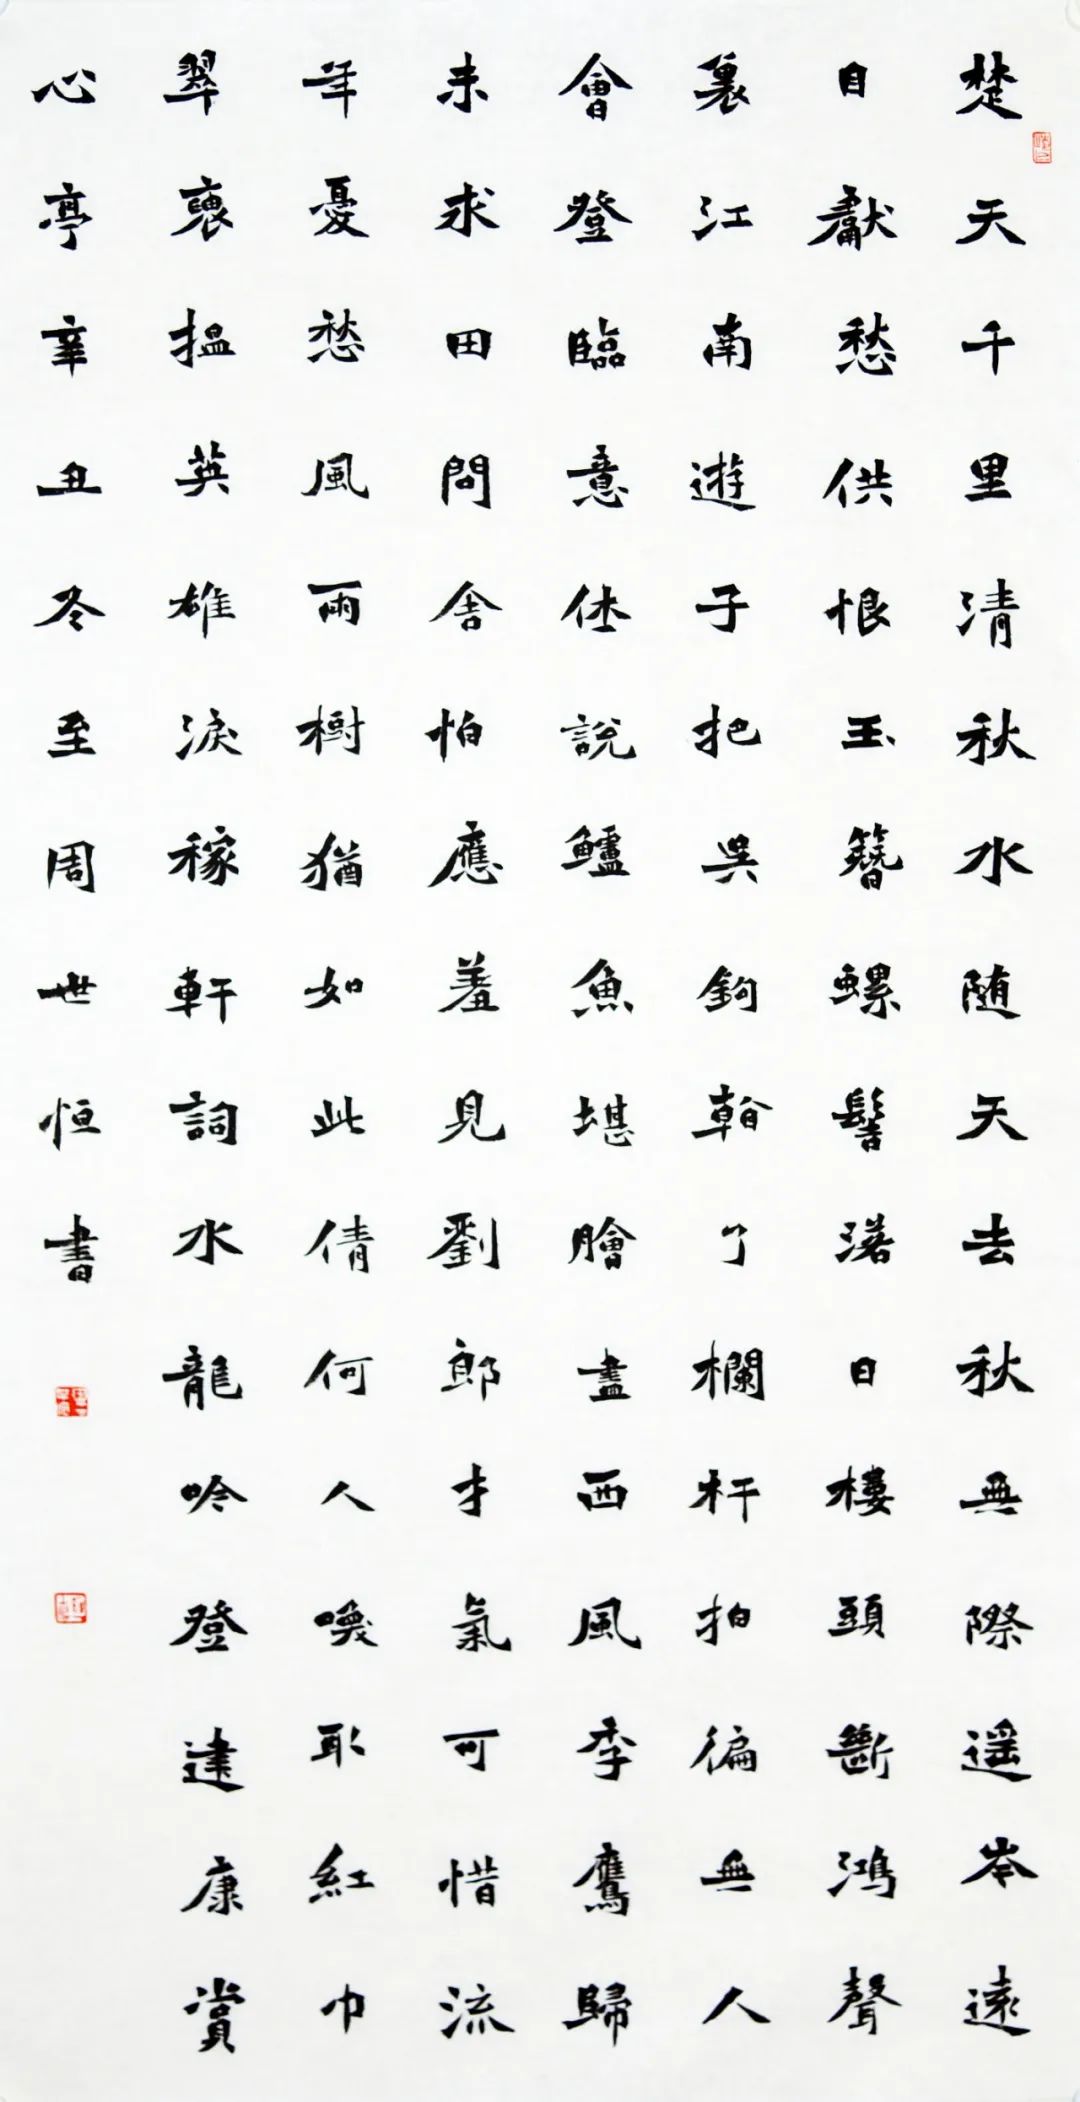 楚天千里清秋水随天去秋無際遥岑遠
目獻愁供恨玉簪螺髻落日樓頭斷鴻聲
裏江南遊子把吳鉤看了欄杆拍徧無人
會登臨意休說鱸魚堪膾盡西風季鷹歸
未求田問舍怕應羞見劉郎才氣可惜流
年憂愁風雨樹猶如此倩何人喚取紅巾
翠褎搵英雄淚稼軒詞水龍吟登建康賞
心亭辛丑冬至周世恒書